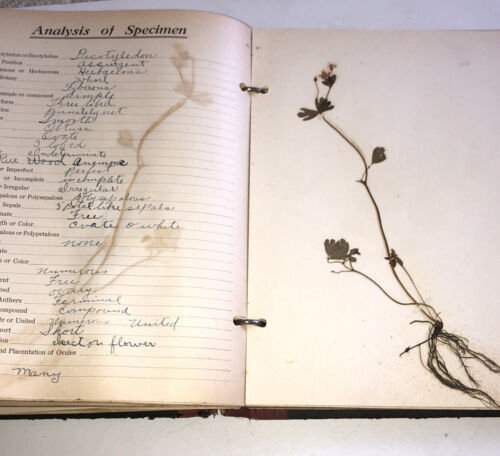 Analysis of Specimen
otyledon or Dicotyledon Dicotyledon
Position Assurgent
or Herbaceous Herbaceous
Whorl
Fibrous
simple or compound Simple
form Three lobed
tion Pinnately net
Smooth
Obtuse
Ovate
3 lobed
indeterminate
Rue Wood Anemone
or Imperfect Perfect
or Incomplete incomplete
r Irregular Irregular
palous or Polysepalous Polysepalous
Sepals 5 petal like sepals
nate Free
gth or Color Ovate & white
opalous or Polypetalous
none
ate
or Color
numerous
ent Free
hed ovary
Anthers Terminal
ompound Compound
te or United Numerous United
ort Short
ion erect on flower
nd Placentation of Ovules
Many